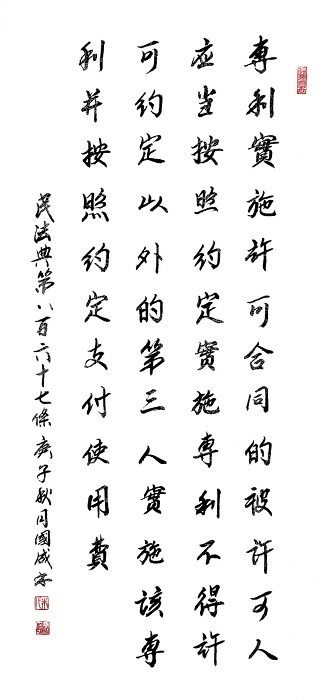 專利實施許可合同的被許可人
应当按照約定實施專利不得許
可約定以外的第三人實施該專
利并按照約定支付使用費
民法典第八百六十七條 庚子秋月國成書